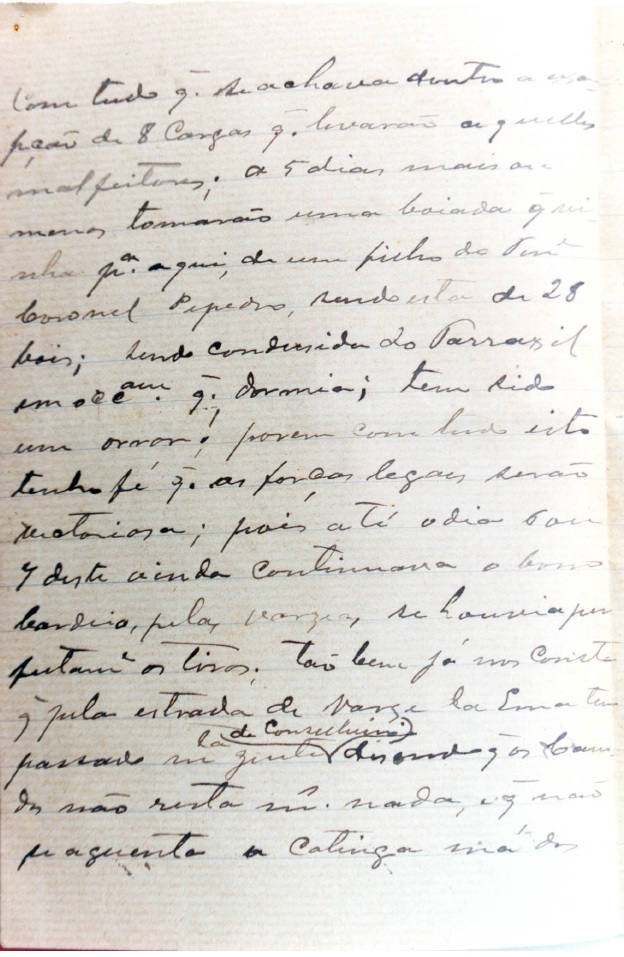 Com tudo q̃. se achava dentro a exce-
pção de 8 Cargas q̃. levarão aquelles
malfeitores; a 5 dias mais ou
menos tomarão uma boiada q̃ vi
nha pª. aqui, de um filho do Tenᵉ
Coronel Pepedro, sendo esta de 28
bois; sendo condusida do Parraxil
em occᵃᵐ. q̃. dormia; tem sido
um orror; porem com tudo isto
tenho fé q̃. as forças legaes serão
victoriosa; pois até o dia 6 ou
7 deste ainda continuava o bom
bardeio, pelas varges, se houvia per
feitamᵉ os tiros. tão bem já nos consta
q̃ pela estrada de Varge la Ema tem
passado mᵗᵃ gente (de Conselheiro) disendo q̃ os Canu
dos não resta mˢ. nada, e q̃ não
se aguenta a Catinga má dos